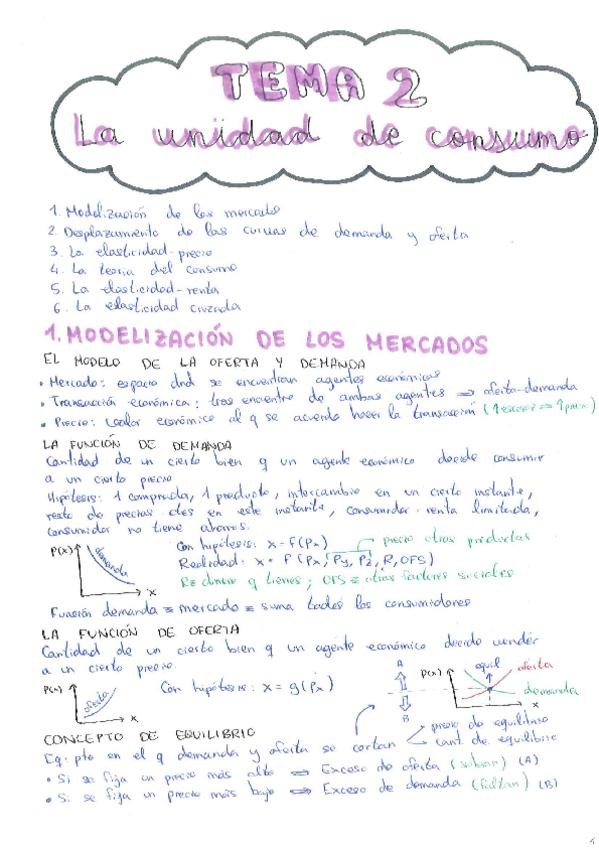 TEMA 2
La unidad de consumo
1. Modelización de los mercados
2. Desplazamiento de las curvas de demanda y oferta
3. La elasticidad-precio
4. La teoría del consumo
5. La elasticidad-renta
6. La elasticidad cruzada
1. MODELIZACIÓN DE LOS MERCADOS
EL MODELO DE LA OFERTA Y DEMANDA
• Mercado: espacio dnd se encuentran agentes económicos
• Transacción económica: tras encuentro de ambos agentes ⇒ oferta-demanda
• Precio: valor económico al q se acuerda hacer la transacción (↑escasez ⇒ ↑precio)
LA FUNCIÓN DE DEMANDA
Cantidad de un cierto bien q un agente económico decide consumir
a un cierto precio
Hipótesis: 1 comprador, 1 producto, intercambio en un cierto instante,
resto de precios ctes en este instante, consumidor renta limitada,
consumidor no tiene ahorros.
P(x) demanda x
Con hipótesis: x = f(Px) precio otros productos
Realidad: x = F(Px, Py, Pz, R, OFS)
R ≡ dinero q tienes; OFS ≡ otros factores sociales
Función demanda ≡ mercado ≡ suma todos los consumidores
LA FUNCIÓN DE OFERTA
Cantidad de un cierto bien q un agente económico decide vender
a un cierto precio.
P(x) oferta x
Con hipótesis: x = g(Px)
A B
P(x) equil oferta demanda x
CONCEPTO DE EQUILIBRIO
Eq: pto en el q demanda y oferta se cortan precio de equilibrio
cant. de equilibrio
• Si se fija un precio más alto ⇒ Exceso de oferta (sobran) (A)
• Si se fija un precio más bajo ⇒ Exceso de demanda (faltan) (B)